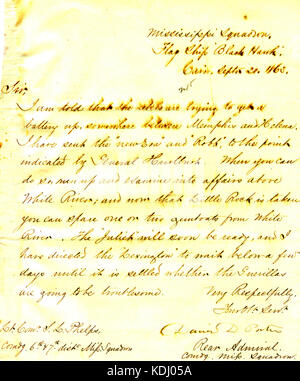 Mississippi Squadron,
Flag Ship Black Hawk
Cairo, Sept. 20. 1863.
Sir,
I am told that the rebels are trying to get a
battery up, somewhere between Memphis and Helena.
I have sent the new Era and Robb, to the point
indicated by General Hurlbut. When you can
do so run up and examine into affairs above
White River; and now that Little Rock is taken
you can spare one or two gunboats from White
River. The Juliet will soon be ready, and I
have directed the Lexington to wait below a few
days until it is settled whether the Guerillas
are going to be troublesome.
Very Respectfully,
Lt. Com. S. L. Phelps,
David D. Porter
Comdg 6th & 7th dists Miss. Squadron
Rear Admiral,
Comdg Miss. Squadron
alamy
Image ID: HDJ05A
www.alamy.com